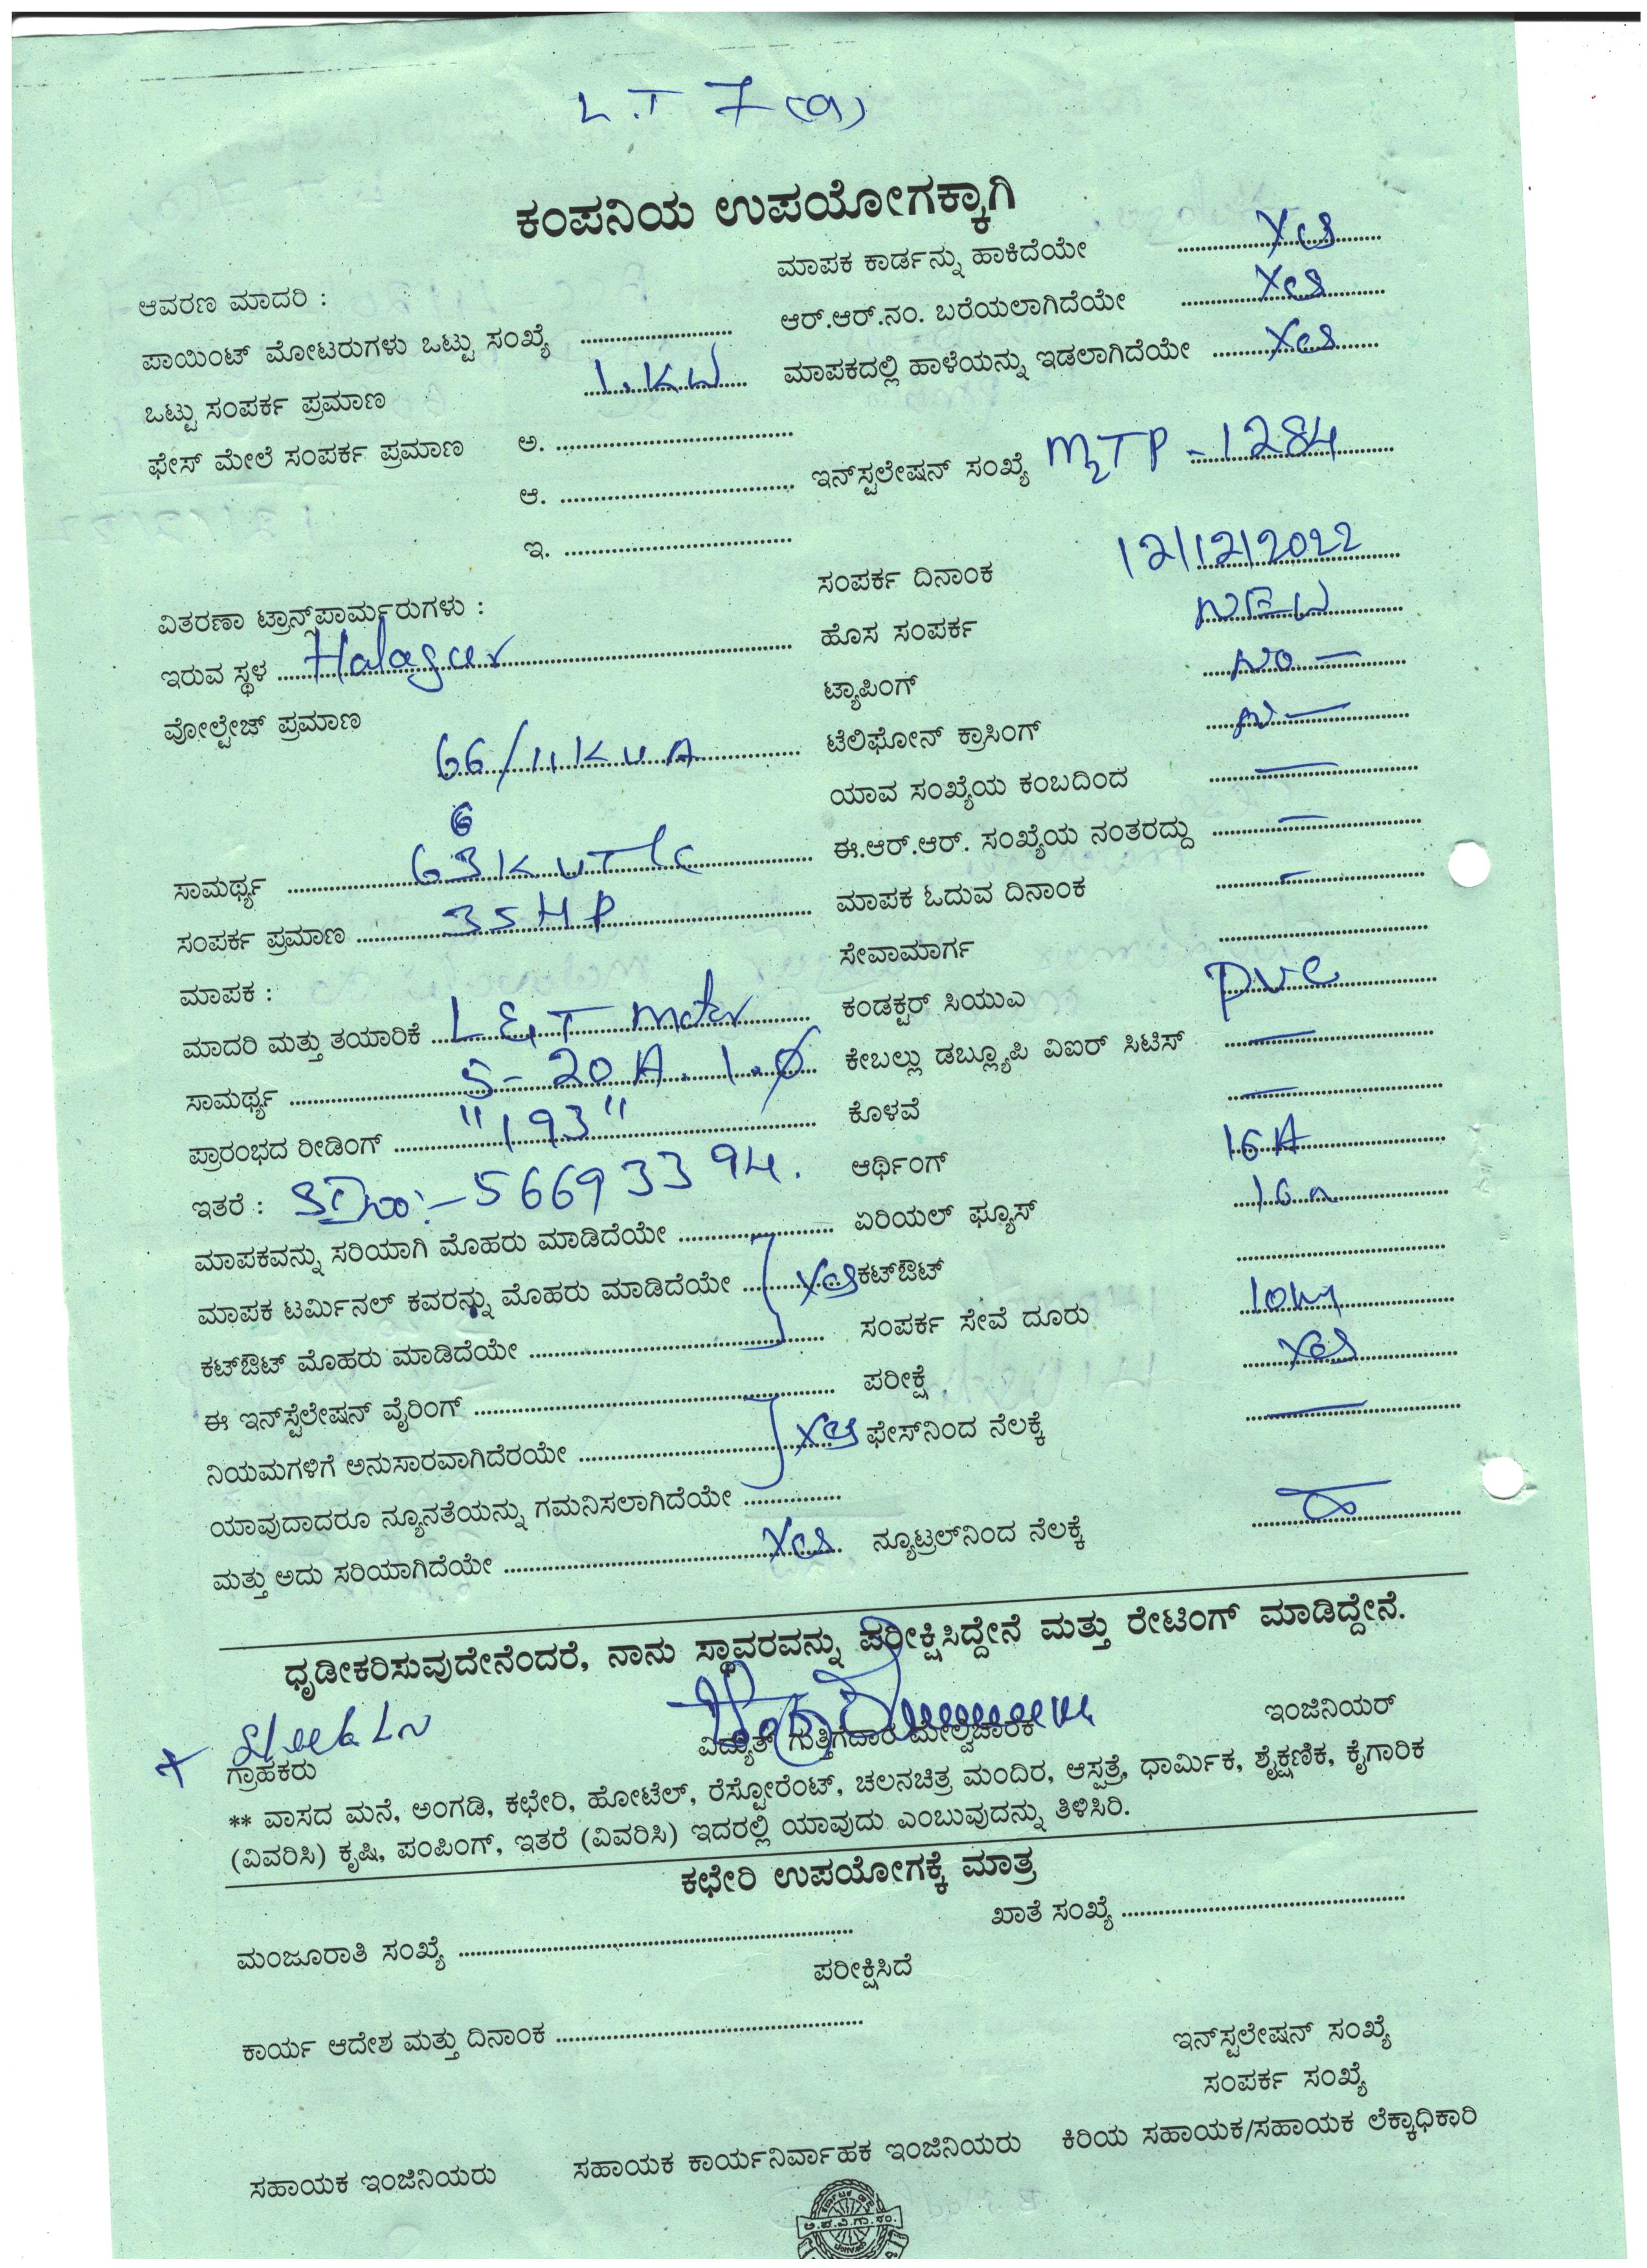 L.T 7(a)
ಕಂಪನಿಯ ಉಪಯೋಗಕ್ಕಾಗಿ
ಮಾಪಕ ಕಾರ್ಡನ್ನು ಹಾಕಿದೆಯೇ Yes
ಆವರಣ ಮಾದರಿ :
ಆರ್.ಆರ್.ನಂ. ಬರೆಯಲಾಗಿದೆಯೇ Yes
ಪಾಯಿಂಟ್ ಮೋಟರುಗಳು ಒಟ್ಟು ಸಂಖ್ಯೆ
ಮಾಪಕದಲ್ಲಿ ಹಾಳೆಯನ್ನು ಇಡಲಾಗಿದೆಯೇ Yes
ಒಟ್ಟು ಸಂಪರ್ಕ ಪ್ರಮಾಣ 1.KW
ಫೇಸ್ ಮೇಲೆ ಸಂಪರ್ಕ ಪ್ರಮಾಣ ಅ.
ಆ. ಇನ್‌ಸ್ಟಲೇಷನ್ ಸಂಖ್ಯೆ MTP - 1284
ಇ.
ಸಂಪರ್ಕ ದಿನಾಂಕ 12/12/2022
ವಿತರಣಾ ಟ್ರಾನ್ಸ್‌ಪಾರ್ಮರುಗಳು :
ಹೊಸ ಸಂಪರ್ಕ NEW
ಇರುವ ಸ್ಥಳ Halagur
ಟ್ಯಾಪಿಂಗ್ NO —
ವೋಲ್ಟೇಜ್ ಪ್ರಮಾಣ 66/11KVA
ಟೆಲಿಫೋನ್ ಕ್ರಾಸಿಂಗ್ N —
ಯಾವ ಸಂಖ್ಯೆಯ ಕಂಬದಿಂದ —
ಸಾಮರ್ಥ್ಯ 63KV
ಈ.ಆರ್.ಆರ್. ಸಂಖ್ಯೆಯ ನಂತರದ್ದು —
ಸಂಪರ್ಕ ಪ್ರಮಾಣ 35HP
ಮಾಪಕ ಓದುವ ದಿನಾಂಕ —
ಮಾಪಕ :
ಸೇವಾಮಾರ್ಗ
ಮಾದರಿ ಮತ್ತು ತಯಾರಿಕೆ L&T meter
ಕಂಡಕ್ಟರ್ ಸಿಯುಎ PVC
ಸಾಮರ್ಥ್ಯ 5-20A. 1.Ø
ಕೇಬಲ್ಲು ಡಬ್ಲ್ಯೂಪಿ ವಿಐರ್ ಸಿಟಿಸ್ —
ಪ್ರಾರಂಭದ ರೀಡಿಂಗ್ "193"
ಕೊಳವೆ —
ಇತರೆ : 56693394.
ಆರ್ಥಿಂಗ್ 16A
ಮಾಪಕವನ್ನು ಸರಿಯಾಗಿ ಮೊಹರು ಮಾಡಿದೆಯೇ
ಏರಿಯಲ್ ಫ್ಯೂಸ್
ಮಾಪಕ ಟರ್ಮಿನಲ್ ಕವರನ್ನು ಮೊಹರು ಮಾಡಿದೆಯೇ Yes
ಕಟ್‌ಔಟ್
ಕಟ್‌ಔಟ್ ಮೊಹರು ಮಾಡಿದೆಯೇ
ಸಂಪರ್ಕ ಸೇವೆ ದೂರು 10m
ಈ ಇನ್‌ಸ್ಟೆಲೇಷನ್ ವೈರಿಂಗ್
ಪರೀಕ್ಷೆ Yes
ನಿಯಮಗಳಿಗೆ ಅನುಸಾರವಾಗಿದೆರಯೇ Yes
ಫೇಸ್‌ನಿಂದ ನೆಲಕ್ಕೆ —
ಯಾವುದಾದರೂ ನ್ಯೂನತೆಯನ್ನು ಗಮನಿಸಲಾಗಿದೆಯೇ
ಮತ್ತು ಅದು ಸರಿಯಾಗಿದೆಯೇ Yes
ನ್ಯೂಟ್ರಲ್‌ನಿಂದ ನೆಲಕ್ಕೆ
ಧೃಡೀಕರಿಸುವುದೇನೆಂದರೆ, ನಾನು ಸ್ಥಾವರವನ್ನು ಪರೀಕ್ಷಿಸಿದ್ದೇನೆ ಮತ್ತು ರೇಟಿಂಗ್ ಮಾಡಿದ್ದೇನೆ.
ಗ್ರಾಹಕರು ವಿದ್ಯುತ್ ಗುತ್ತಿಗೆದಾರ ಮೇಲ್ವಿಚಾರಕ ಇಂಜಿನಿಯರ್
** ವಾಸದ ಮನೆ, ಅಂಗಡಿ, ಕಛೇರಿ, ಹೋಟೆಲ್, ರೆಸ್ಟೋರೆಂಟ್, ಚಲನಚಿತ್ರ ಮಂದಿರ, ಆಸ್ಪತ್ರೆ, ಧಾರ್ಮಿಕ, ಶೈಕ್ಷಣಿಕ, ಕೈಗಾರಿಕ
(ವಿವರಿಸಿ) ಕೃಷಿ, ಪಂಪಿಂಗ್, ಇತರೆ (ವಿವರಿಸಿ) ಇದರಲ್ಲಿ ಯಾವುದು ಎಂಬುವುದನ್ನು ತಿಳಿಸಿರಿ.
ಕಛೇರಿ ಉಪಯೋಗಕ್ಕೆ ಮಾತ್ರ
ಮಂಜೂರಾತಿ ಸಂಖ್ಯೆ ಖಾತೆ ಸಂಖ್ಯೆ
ಪರೀಕ್ಷಿಸಿದೆ
ಕಾರ್ಯ ಆದೇಶ ಮತ್ತು ದಿನಾಂಕ
ಇನ್‌ಸ್ಟಲೇಷನ್ ಸಂಖ್ಯೆ
ಸಂಪರ್ಕ ಸಂಖ್ಯೆ
ಸಹಾಯಕ ಇಂಜಿನಿಯರು ಸಹಾಯಕ ಕಾರ್ಯನಿರ್ವಾಹಕ ಇಂಜಿನಿಯರು ಕಿರಿಯ ಸಹಾಯಕ/ಸಹಾಯಕ ಲೆಕ್ಕಾಧಿಕಾರಿ